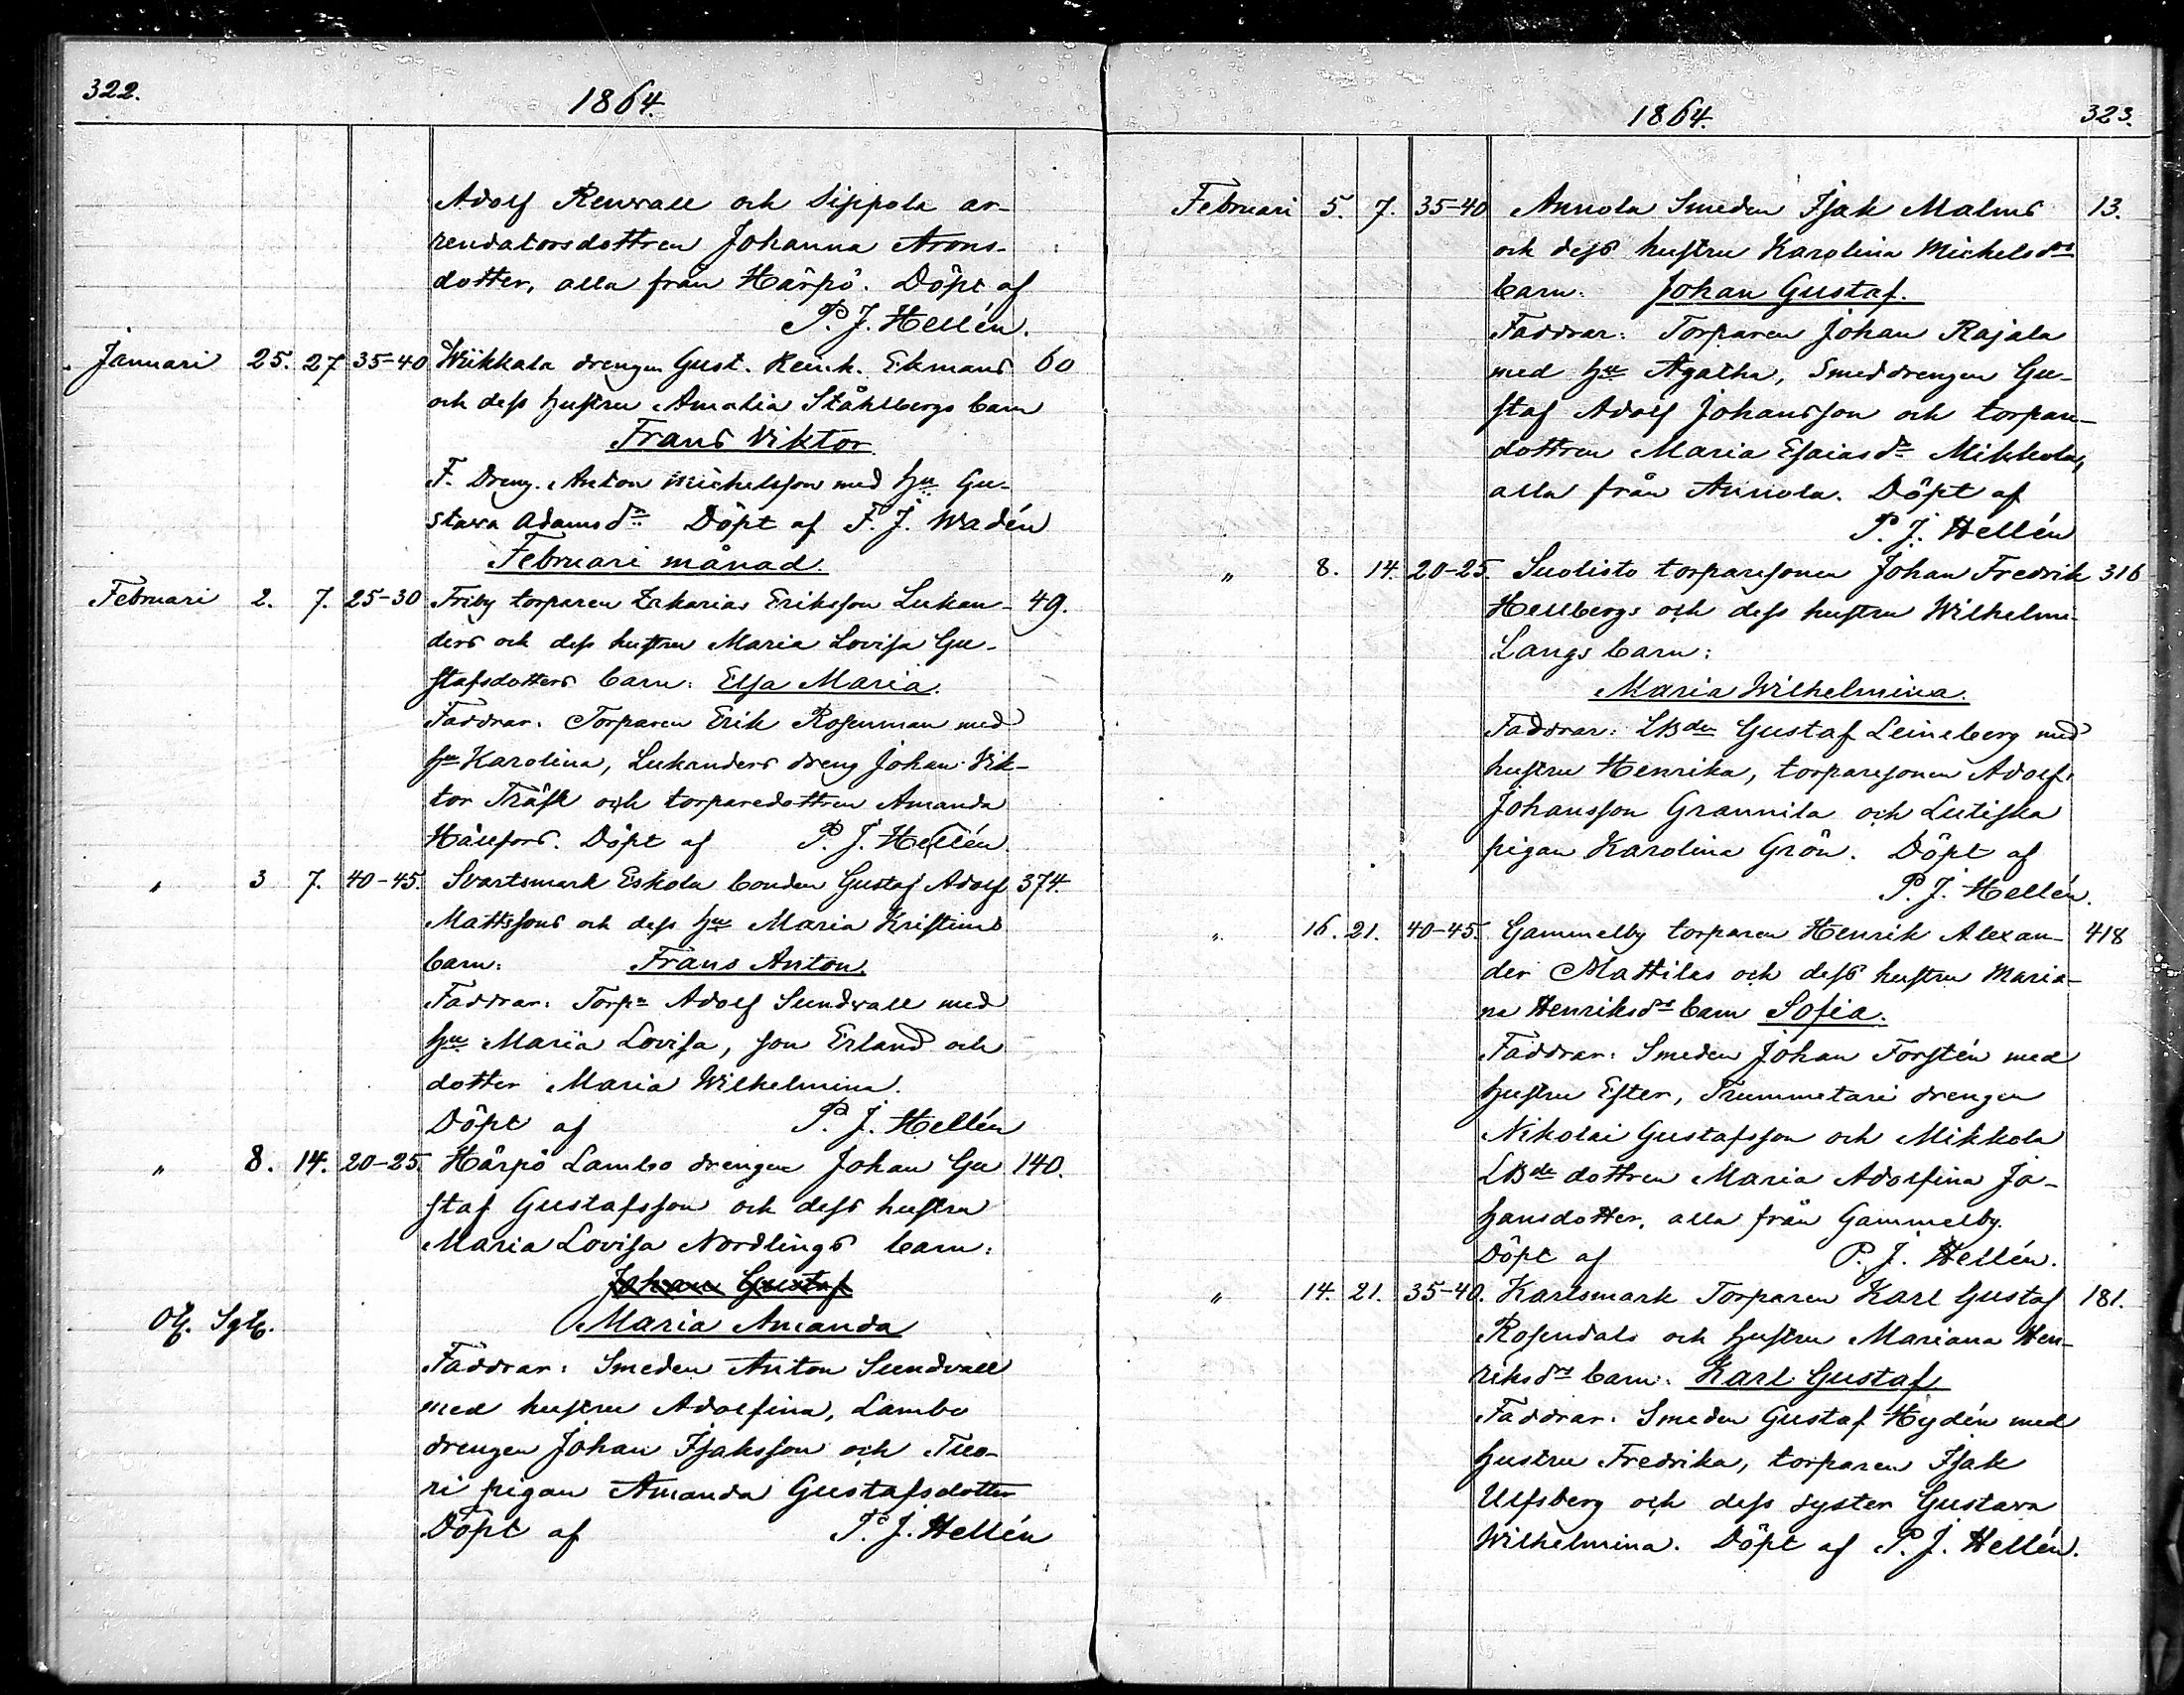 322.
1864.
Adolf Renvall och Sippola ar-
rendatorsdottren Johanna Arons-
dotter, alla från Härpö. Döpt af
P. J. Hellén.
Januari 25. 27 35-40 Wiikkala drengen Gust. Reinh. Ekmans 60
och dess hustru Amalia Ståhlbergs barn
Frans Viktor.
F. Dreng. Anton Michelsson med hu Gu-
stava Adamsdr Döpt af F. J. Wadén
Februari månad.
Februari 2. 7. 25-30 Friby torparen Zakarias Eriksson Lukan- 49.
ders och dess hustru Maria Lovisa Gu-
stafsdotters barn: Elsa Maria.
Faddrar: Torparen Erik Rosenman med
hu Karolina, Lukanders dreng Johan Vik-
tor Träsk och torparedottren Amanda
Hällfors. Döpt af P. J. Hellén.
" 3 7. 40-45. Svartsmark Eskola bonden Gustaf Adolf 374.
Mattssons och dess hu Maria Kristins
barn: Frans Anton.
Faddrar: Torpn Adolf Sundvall med
hu Maria Lovisa, son Erland och
dotter Maria Wilhelmina.
Döpt af P. J. Hellén
" 8. 14. 20-25. Härpö Lambo drengen Johan Gu 140.
staf Gustafsson och dess hustru
Maria Lovisa Nordlings barn:
Johan Gustaf
Maria Amanda
Faddrar: Smeden Anton Sundvall
med hustru Adolfina, Lambo
drengen Johan Isaksson och Tuo-
ri pigan Amanda Gustafsdotter
Döpt af P. J. Hellén
1864.
323.
Februari 5. 7. 35-40 Annola Smeden Isak Malms 13.
och dess hustru Karolina Michelsdrs
barn: Johan Gustaf.
Faddrar: Torparen Johan Rajala
med hu Agatha, Smeddrengen Gu-
staf Adolf Johansson och torpare-
dottren Maria Esaiasdr Mikkola,
alla från Annola. Döpt af
P. J. Hellén
" 8. 14. 20-25. Suolisto torparesonen Johan Fredrik 316
Hellbergs och dess hustru Wilhelmi-
Langs barn:
Maria Wilhelmina.
Faddrar: LBden Gustaf Leineberg med
hustru Henrika, torparesonen Adolf
Johansson Grannila och Lutiska
pigan Karolina Grön. Döpt af
P. J. Hellén.
" 16. 21. 40-45. Gammelby torparen Henrik Alexan- 418
der Mattilas och dess hustru Maria-
na Henriksdrs barn Sofia.
Faddrar: Smeden Johan Forstén med
hustru Ester, Trummetari drengen
Nikolai Gustafsson och Mikkola
LBde dottren Maria Adolfina Jo-
hansdotter, alla från Gammelby.
Döpt af P. J. Hellén.
" 14. 21. 35-40. Karlsmark Torparen Karl Gustaf 181.
Rosendals och hustru Mariana Hen-
riksdrs barn: Karl Gustaf
Faddrar: Smeden Gustaf Hydén med
hustru Fredrika, torparen Isak
Ulfsberg och dess syster Gustava
Wilhelmina. Döpt af P. J. Hellén.